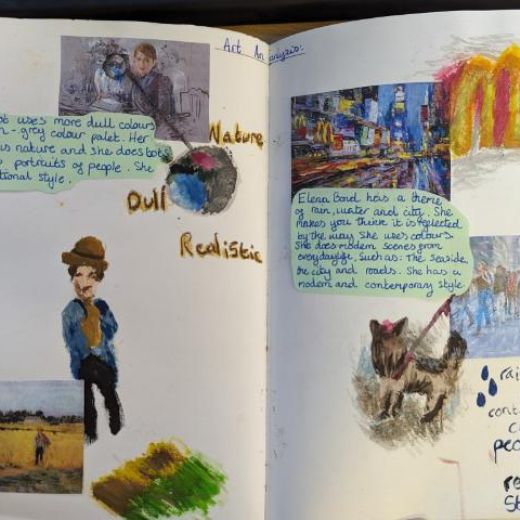 Art Analysis:
uses more dull colours
grey colour palet. Her
is nature and she does both
portraits of people. She
style.
Nature
Dull
Realistic
Elena Bond has a theme
of rain, water and city. She
makes you think it is reflected
by the way she uses colours.
She does modern scenes from
everyday life, such as: The seaside,
the city and roads. She has a
modern and contempory style.